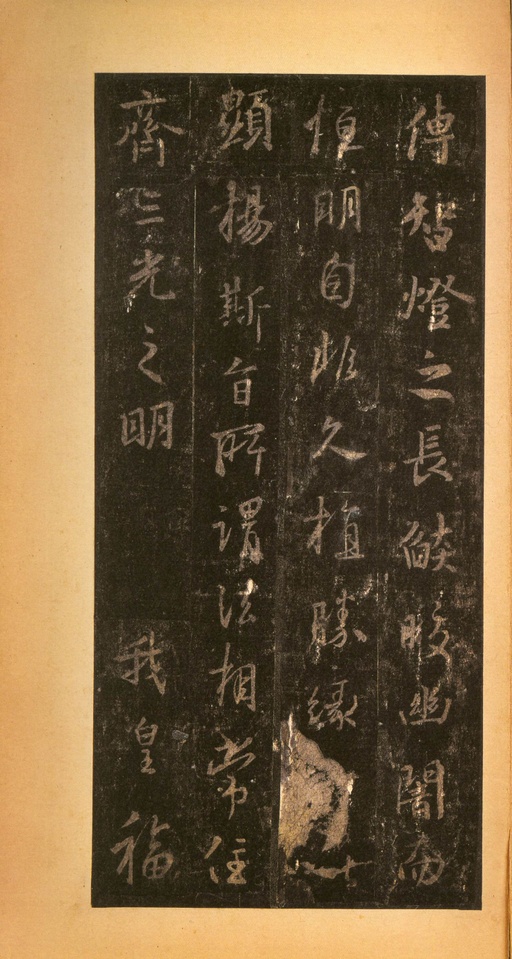 傳智燈之長燄皎幽闇而
恒明自非久植勝緣以
顯揚斯旨所謂法相常住
齊三光之明 我皇福